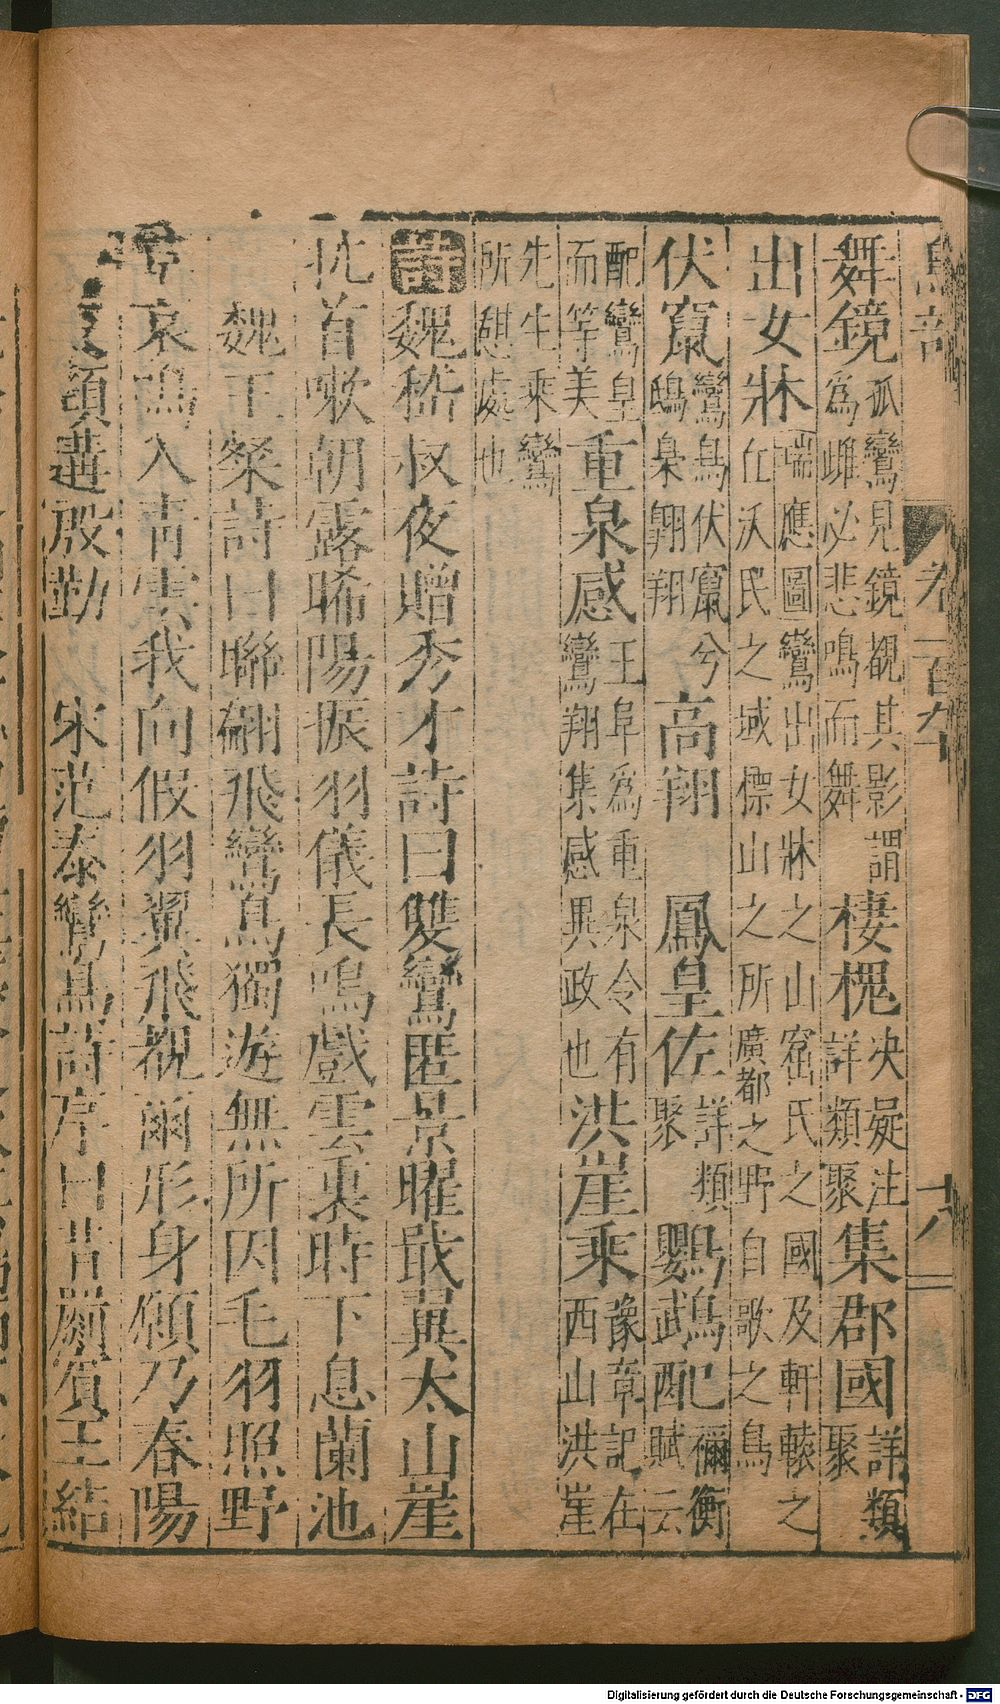 鳥部 卷一百九 十八
舞鏡孤鸞見鏡覩其影謂爲雌必悲鳴而舞 棲槐决疑注詳類聚 集郡國詳類聚
出女牀瑞應圖鸞出女牀之山窋氏之國及軒轅之丘沃民之域標山之所廣都之野自歌之鳥
伏竄鸞鳥伏竄兮鴟梟翺翔 高翔 鳳皇佐詳類聚 鸚鵡配禰衡鸚鵡賦云
配鸞皇而等美 重泉感王阜爲重泉令有鸞翔集感異政也 洪崖乘豫章記在西山洪崖
先生乘鸞所憩處也
詩 魏嵇叔夜贈秀才詩曰雙鸞匿景曜戢翼太山崖
抗首嗽朝露晞陽振羽儀長鳴戲雲裏時下息蘭池
魏王粲詩曰聯翩飛鸞鳥獨遊無所因毛羽照野
草哀鳴入青雲我尚假羽翼飛覩爾形身願乃春陽
交頸遘殷勤 宋范泰鸞鳥詩序曰昔罽賓王結
Digitalisierung gefördert durch die Deutsche Forschungsgemeinschaft - DFG